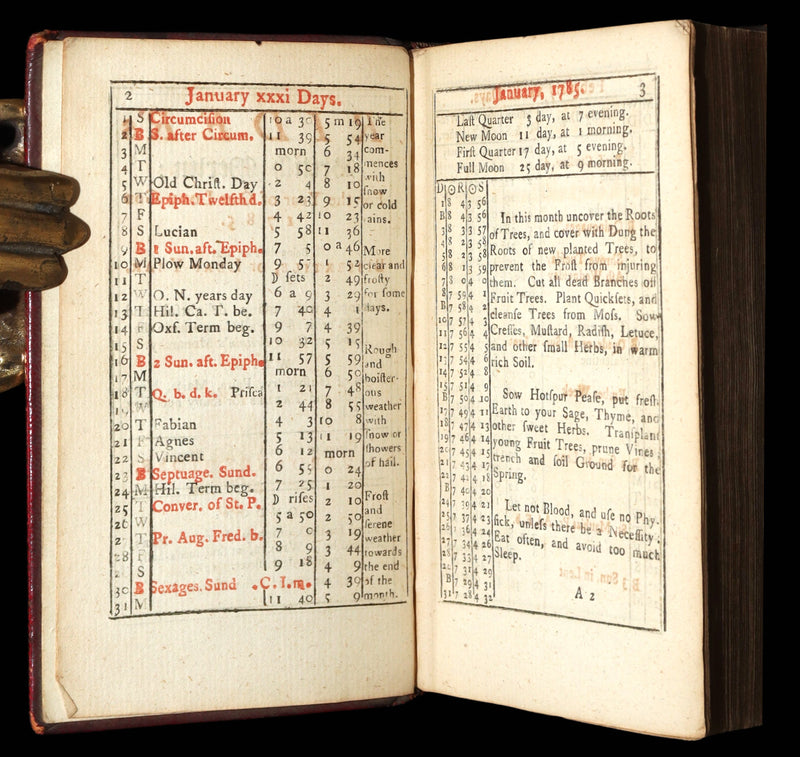 2
January xxxi Days.
1 S Circumcision 10 a 30 5 m 19 The
2 B S. after Circum. 11 39 5 54 year
3 M morn 6 34 com-
4 T 0 50 7 18 mences
5 W Old Christ. Day 2 4 8 10 with
6 T Epiph. Twelfth d. 3 23 9 15 snow
7 F 4 42 10 23 or cold
8 S Lucian 5 58 11 36 rains.
9 B 1 Sun. aft. Epiph. 7 5 0 a 46 More
10 M Plow Monday 9 57 1 52 clear and
11 T D sets 2 49 frosty
12 W O. N. years day 6 a 9 3 29 for some
13 T Hil. Ca. T. be. 7 40 4 1 days.
14 F Oxf. Term beg. 9 7 4 39
15 S 10 32 5 15 Rough
16 B 2 Sun. aft. Epiph. 11 57 5 59 and
17 M morn 6 50 boister-
18 T Q. b. d. k. Prisca 1 21 7 48 ous
19 W 2 44 8 55 weather
20 T Fabian 4 3 10 8 with
21 F Agnes 5 13 11 19 snow or
22 S Vincent 6 12 morn showers
23 B Septuage. Sund. 6 55 0 24 of hail.
24 M Hil. Term beg. 7 25 1 20
25 T Conver. of St. P. D rises 2 10 Frost
26 W 5 a 50 2 50 and
27 T Pr. Aug. Fred. b. 7 0 3 19 serene
28 F 8 9 3 44 weather
S 9 18 4 9 towards
30 B Sexages. Sund .C.I.m. 4 39 the end of the
31 M 11 40 5 9 month.
January, 1785.
3
Last Quarter 3 day, at 7 evening.
New Moon 11 day, at 1 morning,
First Quarter 17 day, at 5 evening.
Full Moon 25 day, at 9 morning.
D ☉ R ☉ S
1 8 4 3 56
B 8 4 3 56
3 8 3 3 57
4 8 2 3 58
5 8 2 3 58
6 8 1 3 59
7 8 0 4 0
8 7 59 4 1
B 7 58 4 2
10 7 57 4 3
11 7 56 4 4
12 7 55 4 5
13 7 54 4 6
14 7 52 4 8
15 7 51 4 9
B 7 50 4 10
17 7 49 4 11
18 7 47 4 13
19 7 46 4 14
20 7 45 4 15
21 7 43 4 17
B 7 40 4 20
24 7 39 4 21
25 7 37 4 23
26 7 36 4 24
27 7 34 4 26
28 7 33 4 27
B 7 29 4 31
31 7 28 4 32
In this month uncover the Roots
of Trees, and cover with Dung the
Roots of new planted Trees, to
prevent the Frost from injuring
them. Cut all dead Branches off
Fruit Trees. Plant Quicksets, and
cleanse Trees from Moss. Sow
Cresses, Mustard, Radish, Letuce,
and other small Herbs, in warm
rich Soil.
Sow Hotspur Pease, put fresh
Earth to your Sage, Thyme, and
other sweet Herbs. Transplant
young Fruit Trees, prune Vines,
trench and soil Ground for the
Spring.
Let not Blood, and use no Phy-
sick, unless there be a Necessity:
Eat often, and avoid too much
Sleep.
A 2